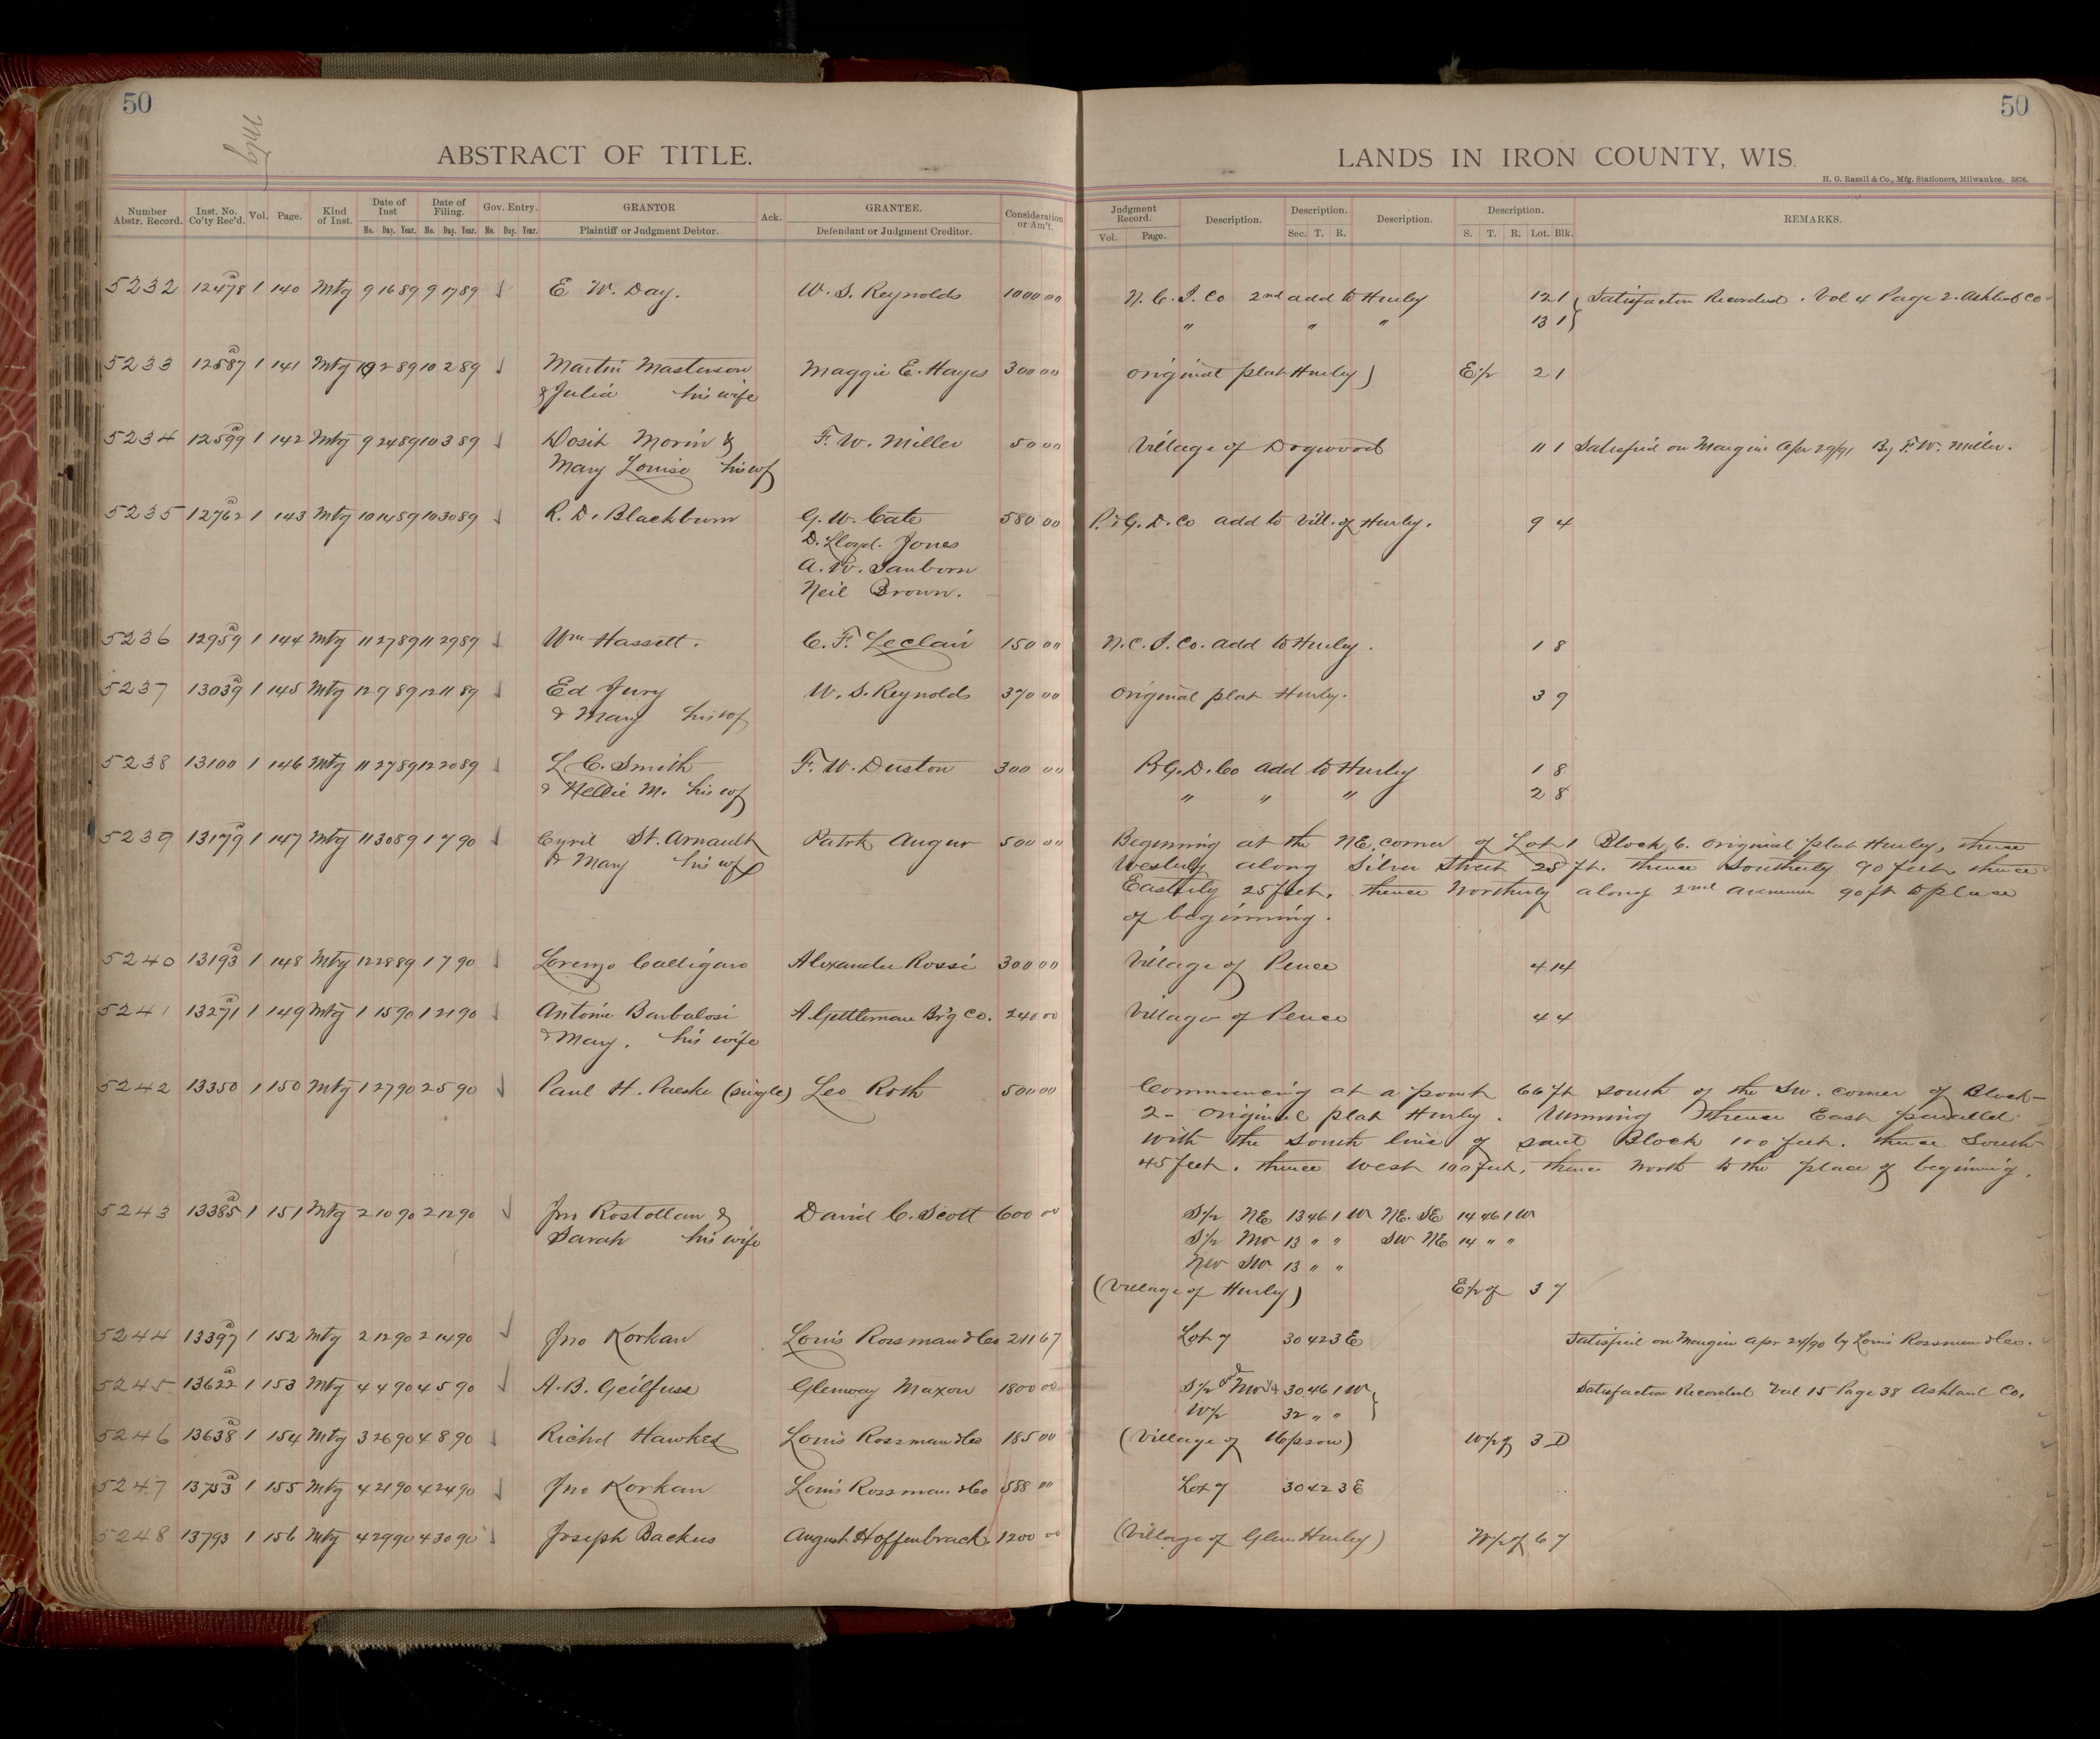 50
Mtg
ABSTRACT OF TITLE.
Number Abstr. Record. Inst. No. Co'ty Rec'd. Vol. Page. Kind of Inst. Date of Inst No. Day. Year. Date of Filing. No. Day. Year. Gov. Entry. No. Day. Year. GRANTOR Plaintiff or Judgment Debtor. Ack. GRANTEE. Defendant or Judgment Creditor. Consideration or Am't.
5232 12478 a 1 140 Mtg 9 16 89 9 17 89 E W. Day. W. S. Reynolds 1000 00
5233 12587 a 1 141 Mtg 10 2 89 10 2 89 Martin Masterson Maggie E. Hayes 300 00
& Julia his wife
5234 12599 a 1 142 Mtg 9 24 89 10 3 89 Dosit Morin & F. W. Miller 50 00
Mary Louise his wf
5235 12762 a 1 143 Mtg 10 14 89 10 30 89 R. D. Blackburn G. W. Cate 580 00
D. Lloyd. Jones
A. W. Sanborn
Neil Brown.
5236 12959 a 1 144 Mtg 11 27 89 11 29 89 Wm Hassett. C. F. Leclair 150 00
5237 13039 a 1 145 Mtg 12 9 89 12 11 89 Ed Jury W. S. Reynolds 370 00
& Mary his wf
5238 13100 1 146 Mtg 11 27 89 12 20 89 L C. Smith F. W. Duston 300 00
& Nellie M. his wf
5239 13179 a 1 147 Mtg 11 30 89 1 7 90 Cyril St. Arnault Patrk Augur 500 00
& Mary his wf
5240 13193 a 1 148 Mtg 12 28 89 1 7 90 Lorenzo Calligaro Alexander Rossi 300 00
5241 13271 a 1 149 Mtg 1 15 90 1 21 90 Antonie Barbalosi A Gettleman Br'g Co. 240 00
& Mary. his wife
5242 13350 1 150 Mtg 1 27 90 2 5 90 Paul H. Paeske (single) Leo Roth 500 00
5243 13385 a 1 151 Mtg 2 10 90 2 12 90 Jno Rostollan & David C. Scott 600 00
Sarah his wife
5244 13397 a 1 152 Mtg 2 12 90 2 14 90 Jno Korkan Louis Rossman & Co 211 67
5245 13622 a 1 153 Mtg 4 4 90 4 5 90 A. B. Geilfuss Glenway Maxon 1800 00
5246 13638 a 1 154 Mtg 3 26 90 4 8 90 Richd Hawkes Louis Rossman & Co 185 00
5247 13753 a 1 155 Mtg 4 21 90 4 24 90 Jno Korkan Louis Rossman & Co 588 00
5248 13793 1 156 Mtg 4 29 90 4 30 90 Joseph Backus August Hoffenbrack. 1200 00
50
LANDS IN IRON COUNTY, WIS.
H. G. Razall & Co., Mfg. Stationers, Milwaukee. 5876.
Judgment Record. Vol. Page. Description. Description. Sec. T. R. Description. Description. S. T. R. Lot. Blk. REMARKS.
N. C. I. Co 2nd add to Hurley 12 1 Satisfaction Recorded. Vol 4 Page 2. Ashland Co
" " " 13 1
original plat Hurley) E 1/2 2 1
Village of Dogwood 11 1 Satisfied on Margin Apr 29/91 By F. W. Miller.
P. & G. D. Co add to Vill. of Hurley. 9 4
N. C. I. Co. add to Hurley. 1 8
original plat Hurley. 3 9
P. & G. D. Co add to Hurley 1 8
" " " 2 8
Beginning at the NE, corner of Lot 1 Block 6. original plat Hurley, thence
Westerly along Silver Street 25 ft. thence Southerly 90 feet, thence
Easterly 25 feet, thence Northerly along 2nd avenue 90 ft to place
of beginning.
Village of Pence 4 14
Village of Pence 4 4
Commencing at a point 66 ft south of the SW. corner of Block
2 - original plat Hurley. Running thence East parallel
with the south line of said Block 100 feet. thence South
45 feet. thence West 100 feet, thence North to the place of beginning.
S 1/2 NE 13 46 1 W NE. SE 14 46 1 W
S 1/2 NW 13 " " SW NE 14 " "
NW SW 13 " "
(Village of Hurley) E 1/2 of 3 7
Lot 7 30 42 3 E Satisfied on Margin Apr 24/90 by Louis Rossman & Co.
S 1/2 of NW 1/4 30 46 1 W Satisfaction Recorded Vol 15 Page 38 Ashland Co.
W 1/2 32 " "
(Village of Upson) W 1/2 of 3 D
Lot 7 30 42 3 E
(Village of Glen Hurley) W 1/2 of 6 7